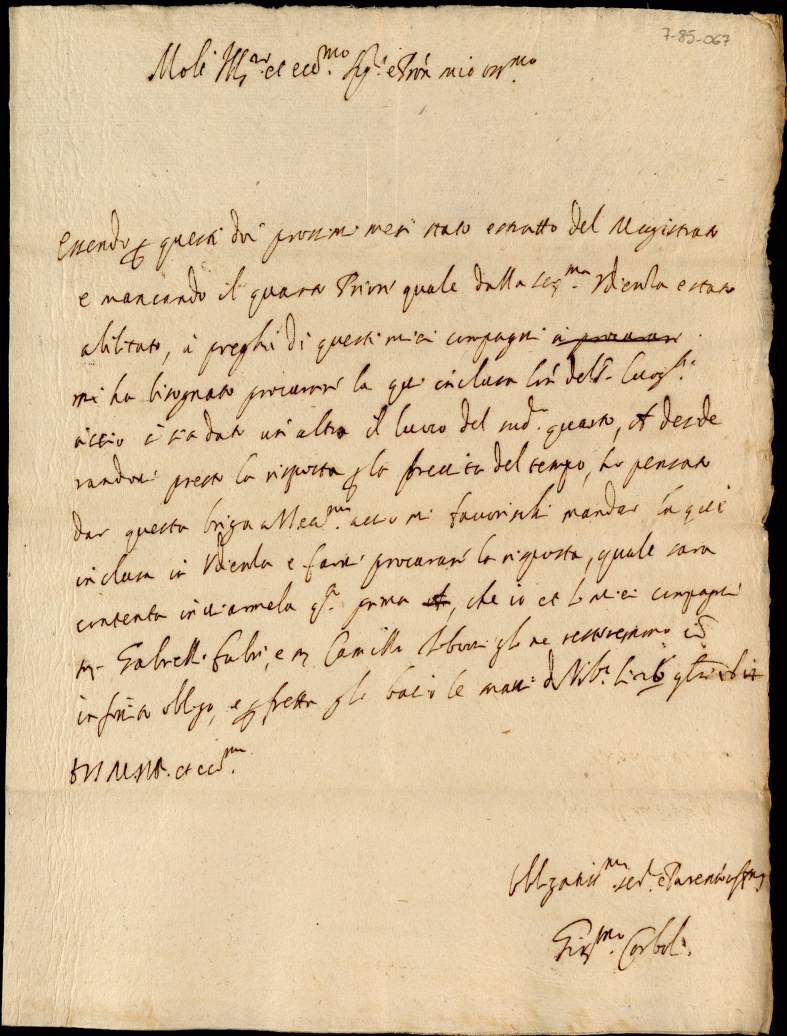 7-85-067
Molt Ill.re et ecc.mo Sig.r e Pron mio oss.mo
Essendo questi doi prossimi mesi stato estratto del Magistrato
e mancando il quarto Priore quale dalla ser.ma Udienza e stato
abilitato, à preghi di questi miei compagni
mi ha bisognato procurare la qui inclusa
accio ci sia dato un altro il luoco del sud.o quarto, et deside
randone presto la risposta p la brevita del tempo, ho pensato
dar questa briga accio mi favorischi mandar la qui
inclusa in Udienza e farne procurare la risposta, quale sara
contenta inviarmela prima, che io et li miei compagni
Gabrielle Fabri, e Camillo gli ne restaremo
infinito obligo, e p fretta gli bacio le mani
et ecc.ma
Obligatiss.mo ser.e e Parente
Gir.mo Corboli